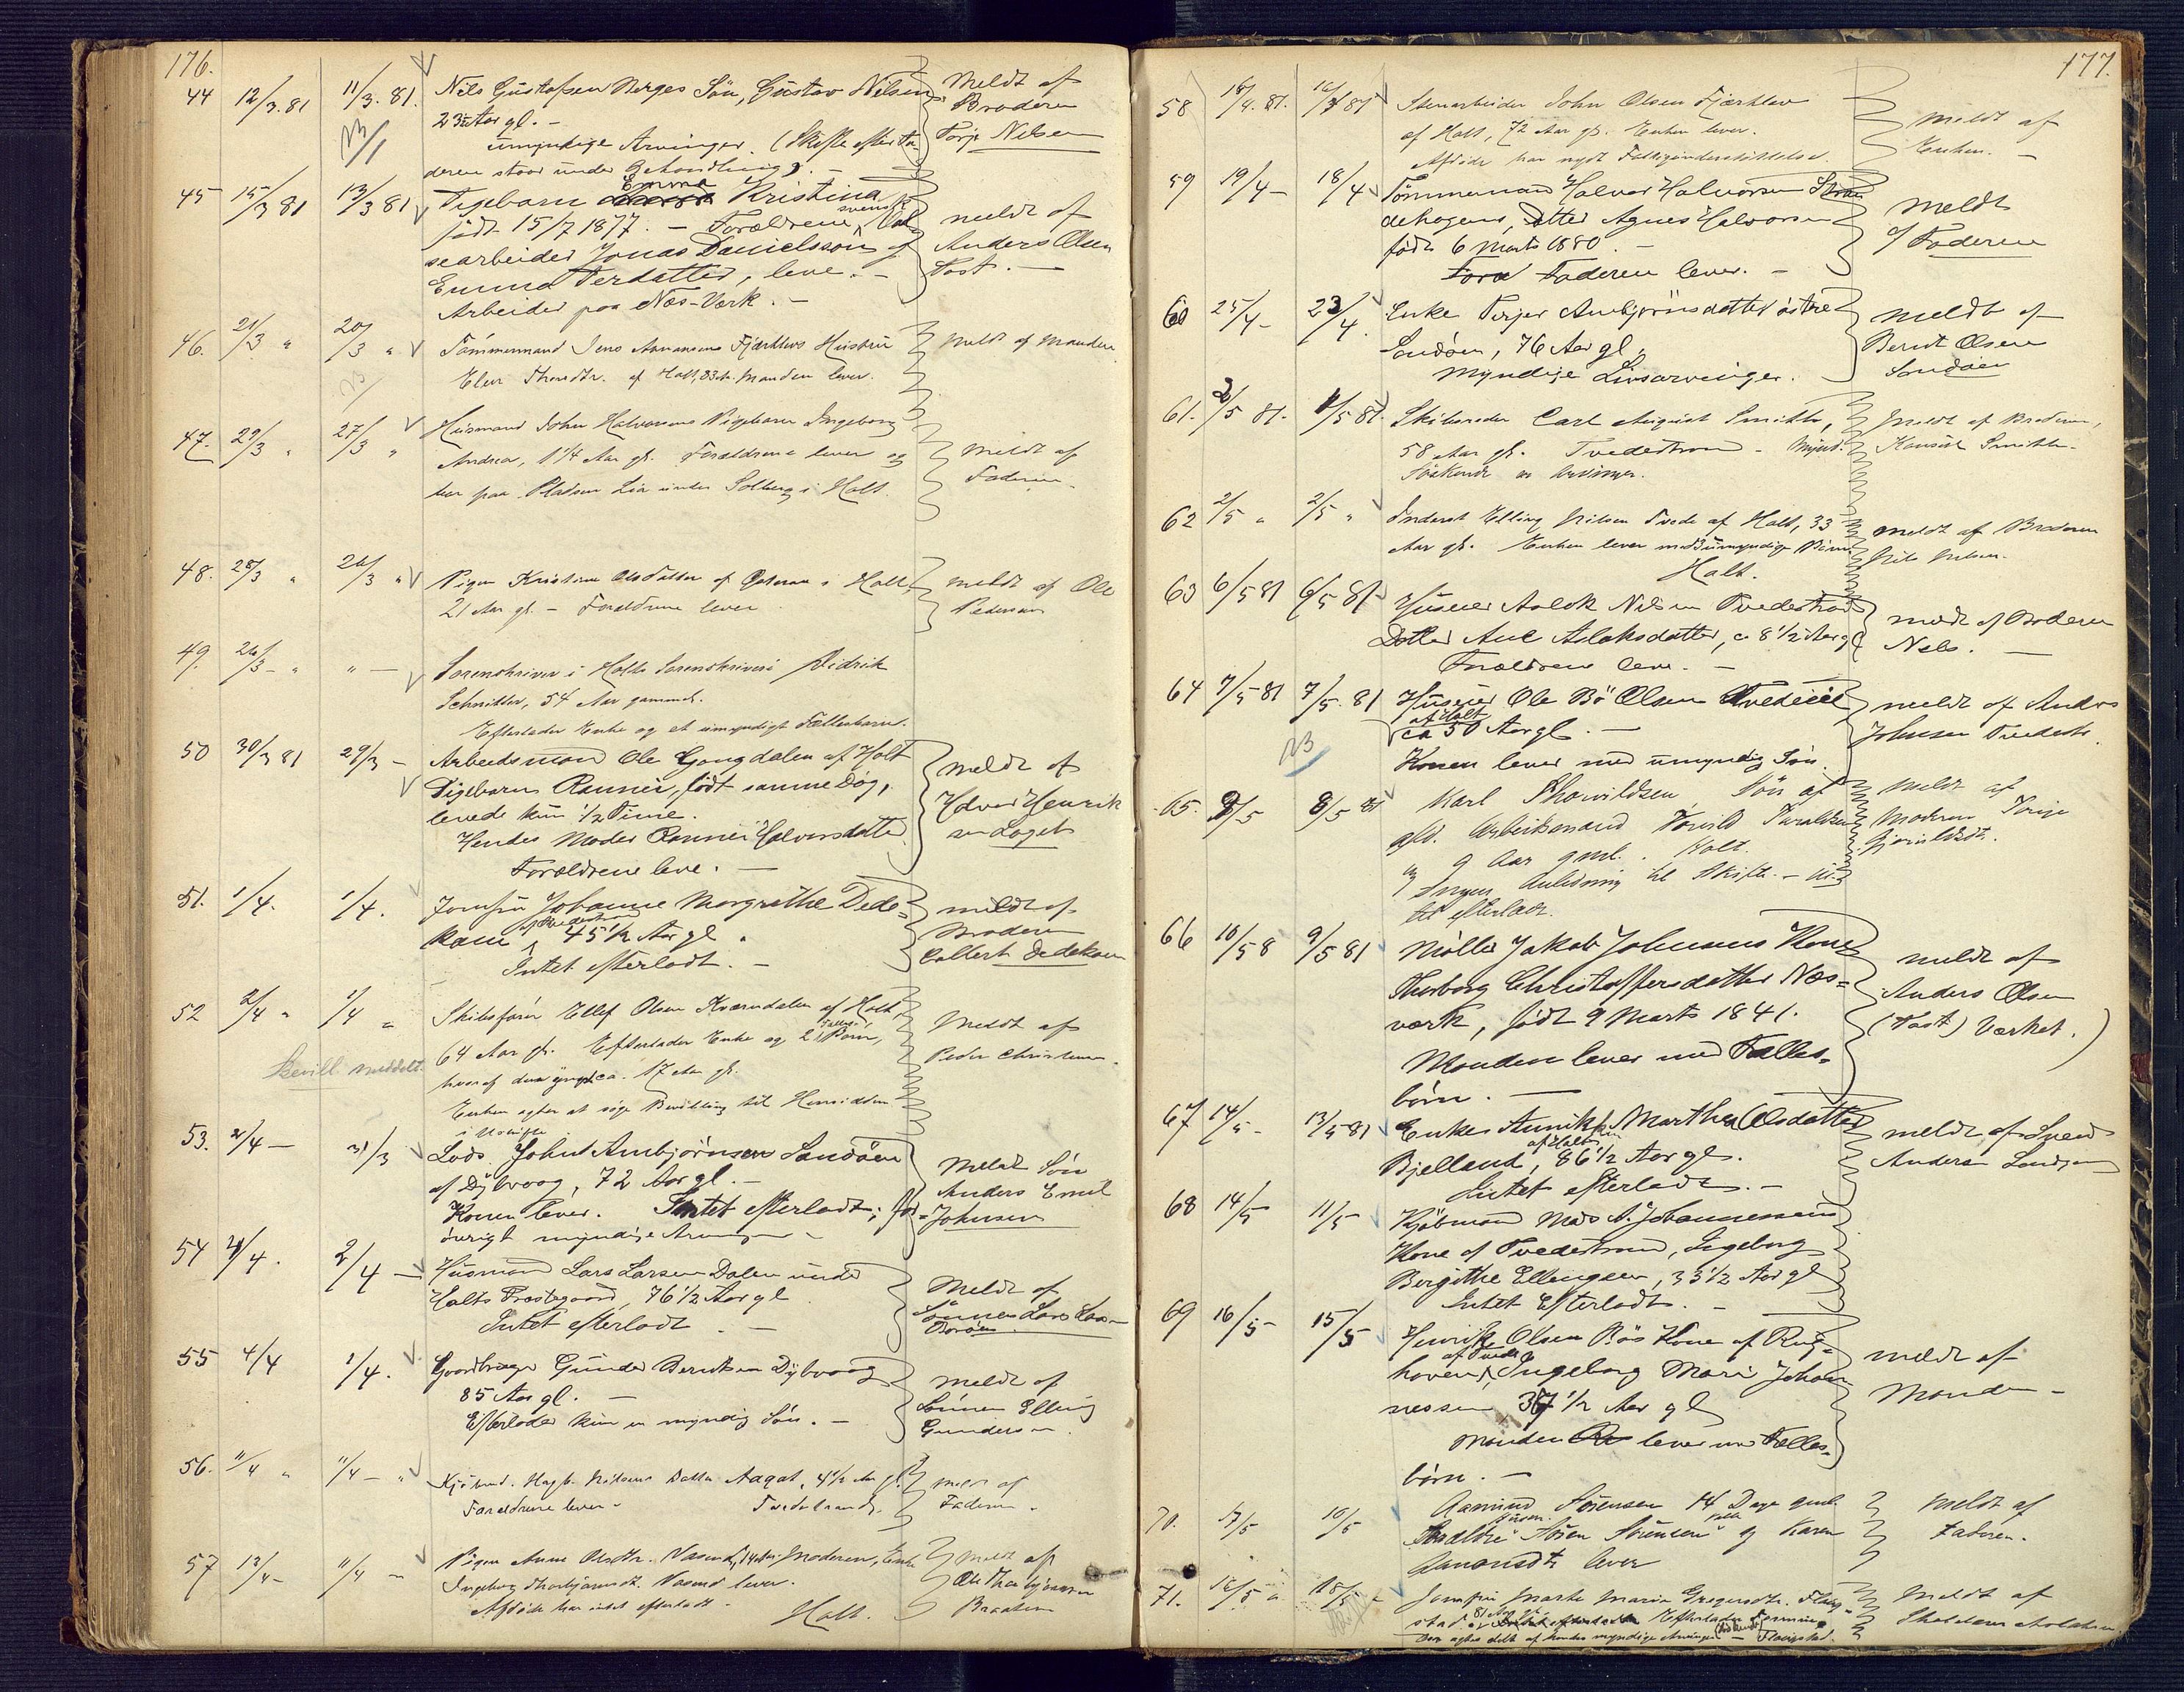 176.
44 12/3.81 11/3.81. Nils Gustafsen Berges Sön, Gustav Nilsen Meldt af
23 Aar gl. - Broderen
umyndige Arvinger. (Skifte efter Fa- Torje Nilsen
deren staar under Behandling). -
45 15/3 81 13/3 81 Pigebarn Emma Kristina
født 15/7 1877. - Forældrene, svensk meldt af
searbeider Jonas Danielsson og Anders Olsen
Emma Persdatter, leve. - Tast. -
Arbeider paa Næs-Værk. -
46. 21/3 " 20/3 " Tømmermand Jens Aanansens Fjærkleiv Hustru meldt af Manden
Elen Thordtr. af Holt, 83 Ar. Manden lever.
47. 29/3 " 27/3 " Husmand John Halvorsens Pigebarn Ingeborg
Andrea, 1 1/4 Aar gl. Forældrene lever og meldt af
bor paa Pladsen Lia under Solberg i Holt. Faderen.
48. 28/3 " 26/3 " Pigen Kristine Olsdatter af i Holt, meldt af Ole
21 Aar gl. - Forældrene lever Pedersen
49. 26/3 - " " - Sorenskriver i Holts Sorenskriveri Didrik
Schnitler, 54 Aar gammel.
Efterlader Enke og et umyndigt Fællesbarn.
50 30/3 81 29/3 - Arbeidsmand Ole Gongdalen af Holt meldt af
Pigebarn Rannei, født samme Dag, Halvor Henrik
levede kun 1/2 Time. sen Laget
Hendes Moder Rannei Halvorsdatter
Forældrene leve. -
51. 1/4. 1/4. Jomfru Johanne Margrethe Dede- meldt af
kam af Tvedestrand 45 1/2 Aar gl. Broderen
Intet efterladt. - Colbert Dedekam
52 2/4 " 1/4 " Skibsfører Ellef Olsen Kværndalen af Holt,
64 Aar gl. Efterlader Enke og 2 Fælles Børn, Meldt af
Bevill. meddelt. hvoraf den yngste ca. 17 Aar gl. Peder Christensen
Enken agter at søge Bevilling til Hensidden
i Uskifte
53. 2/4 - 31/3 Lods John Ambjørnsen Sandøen Meldt Søn
af Dybvaag, 72 Aar gl. - Anders Emil
Konen lever. Intet efterladt; for- Johnsen
øvrigt myndige Arvinger -
54 4/4. 2/4 - Husmand Lars Larsen Dalen under Meldt af
Holts Præstegaard, 76 1/2 Aar gl. Sønnen Lars Lars-
Intet efterladt. -
55 4/4 1/4. Gaardbruger Gunder Berntsen Dybvaag meldt af
85 Aar gl. - Sønnen Elling
Efterlader kun en myndig Søn. - Gundersen
56. 11/4 " 11/4 - " Kjøbmd. Hagb. Nielsens Datter Aagot, 4 1/2 Aar gl. meldt af
Forældrene lever - Tvedestrand. Faderen.
57 13/4 - 11/4 - Pigen Anne Olsdtr. Vasend, 14 Ar. Moderen, Enke Meldt af
Ingeborg Thorbjørnsdtr. Vasend lever. Ole Thorbjørnsen
Afdøde har intet efterladt - Holt. Braaten
177.
58 18/4. 81. 16/4 81 Stenarbeider John Olsen Fjærkleiv meldt af
af Holt, 72 Aar gl. Enken lever. Enken. -
Afdøde har nydt Fattigunderstøttelse.
59 19/4 - 18/4 Tømmermand Halvor Halvorsen Stran
dehagens, Datter Agnes Halvorsen meldt
født 6 Marts 1880. - af Faderen
Faderen lever. -
60 25/4 - 23/4. Enke Terjer Ambjørnsdatter østre meldt af
Sandøen, 76 Aar gl. Bernt Olsen
Myndige Livsarvinger. Sandøen
61. 3/5 81. 1/5 81. Skibsreder Carl August Smith, meldt af Broderen,
58 Aar gl. Tvedestrand - Mynd. Konsul Smith.
Søskende er Arvinger.
62 2/5 " 2/5 " Inderst Elling Nilsen Tvede af Holt, 33 meldt af Broderen
Aar gl. Enken lever med umyndige Børn Nils Nilsen.
Holt.
63 6/5 81 6/5 81 Huseier Aslak Nilsen Tvedestrand meldt af Broderen
Datter Ane Aslaksdatter, ca 8 1/2 Aar gl. Nils. -
Forældrene leve. -
64 7/5 81 7/5. 81 Huseier Ole Bö Olsen meldt af Anders
af Holt Johnsen Tvedestr.
ca 50 Aar gl. -
Konen lever med umyndig Søn.
65. 8/5 8/5 81 Karl Thorvildsen Søn af meldt af
afd. Arbeidsmand Torvild Taraldsen Moderen Torje
9 Aar gml. Holt.
Ingen Anledning til Skifte - in-
tet efterladt.
66 10/5 8 9/5 81 Møller Jakob Johnsens Kone meldt af
Thorborg Christoffersdatter Næs- Anders Olsen
værk, født 9 Marts 1841. (Tast) Værket.
Manden lever med Fælles-
børn. -
67 14/5 - 13/5 81 Enken Annikken Marthea Olsdatter meldt af Svend
Bjelland af Holt, 86 1/2 Aar gl. Anderse
Intet efterladt. -
68 14/5 11/5 Kjøbmand Mads A. Johannessens
Kone af Tvedestrand, Ingeborg
Bergithe Ellingsen, 33 1/2 Aar gl
Intet Efterladt. -
69 16/5 - 15/5 Henrik Olsen Røs Kone af Rug- meldt af
haven, af Tvede Ingeborg Marie Johan- Manden -
nessen, 37 1/2 Aar gl
Manden lever med Fælles-
børn. -
70. 17/5 10/5 Aamund Sørensen 14 Dage gml. meldt af
Forældre Søren Sørensen og Karen Faderen.
Aanonsdtr lever
71. 16/5 " 15/5 - Jomfru Marthe Marie Gregersdtr. Flaug- meldt af
stad 81 Aar gl. Efterlader Formue
agtes delt af hendes myndige Arvinger - Flaugstad.